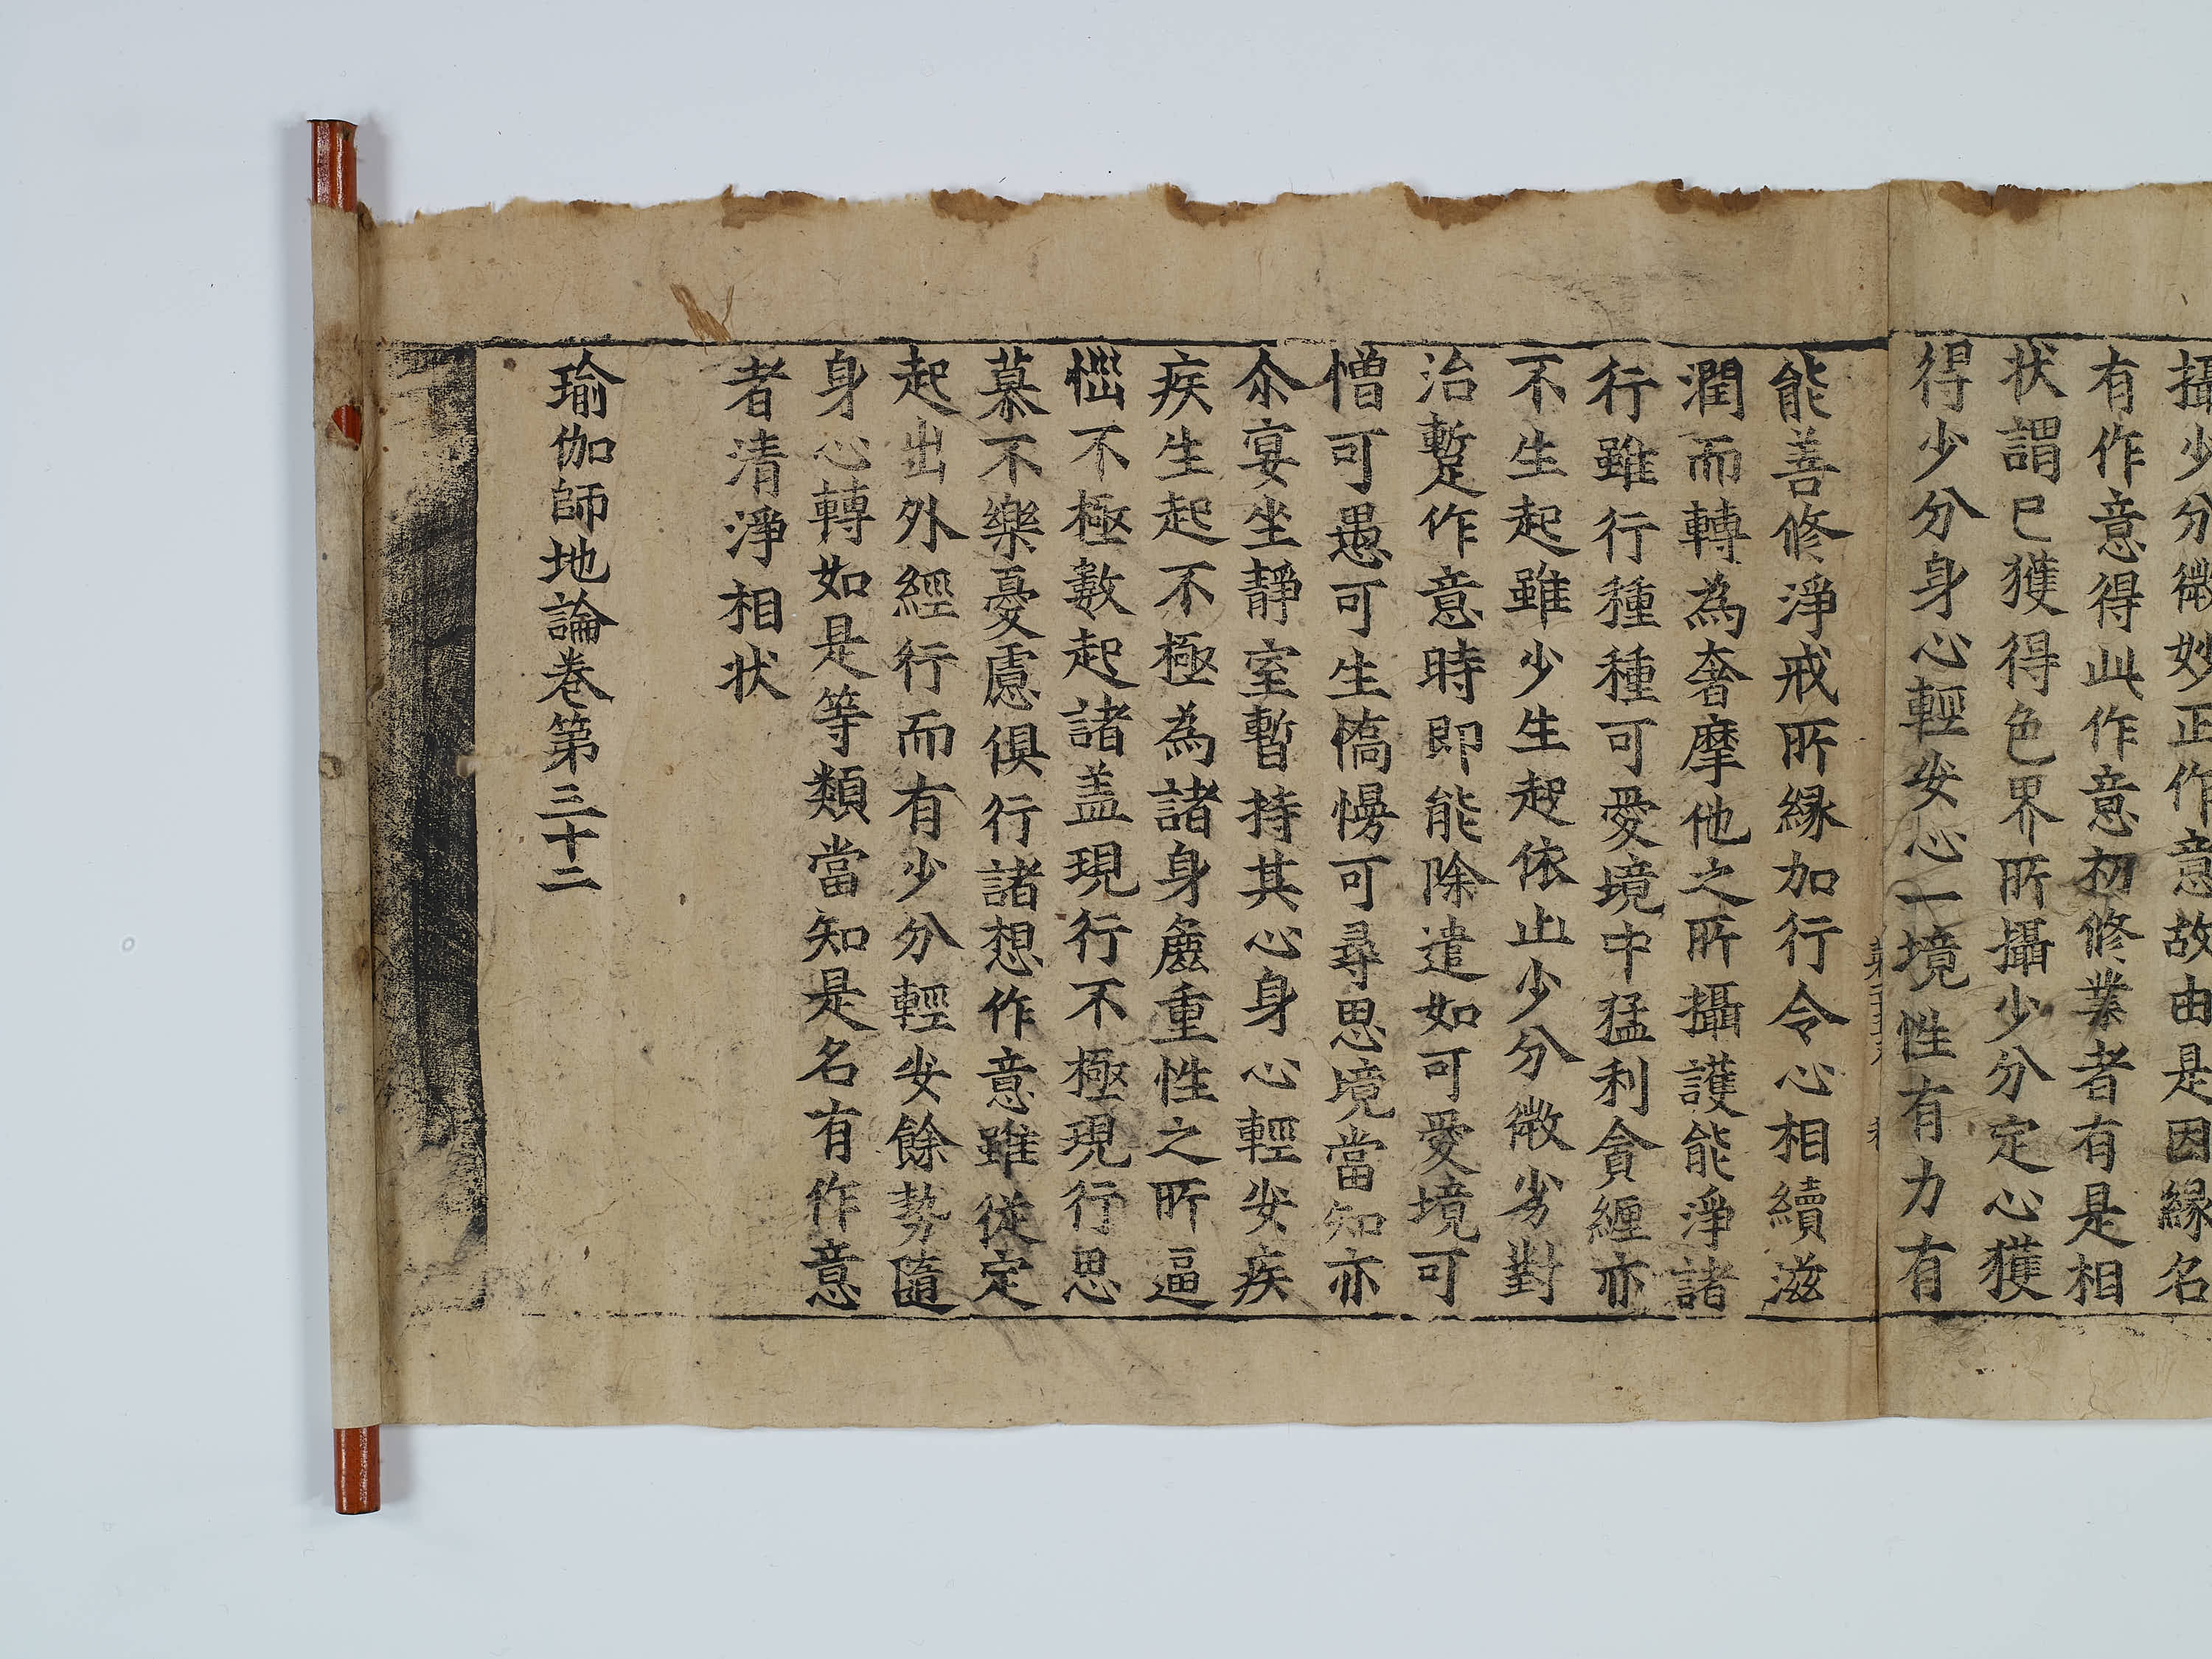 攝少分微妙正作意故由是因縁名
有作意得此作意初修業者有是相
状謂巳獲得色界所攝少分定心獲
得少分身心輕安心一境性有力有
能善修淨戒所縁加行令心相續滋
潤而轉為奢摩他之所攝護能淨諸
行雖行種種可愛境中猛利貪纏亦
不生起雖少生起依止少分微劣對
治暫作意時即能除遣如可愛境可
憎可愚可生憍慢可尋思境當知亦
尒宴坐靜室暫持其心身心輕安疾
疾生起不極為諸身麁重性之所逼
惱不極數起諸盖現行不極現行思
慕不樂憂慮俱行諸想作意雖從定
起出外經行而有少分輕安餘勢隨
身心轉如是等類當知是名有作意
者清淨相状
瑜伽師地論卷第三十二